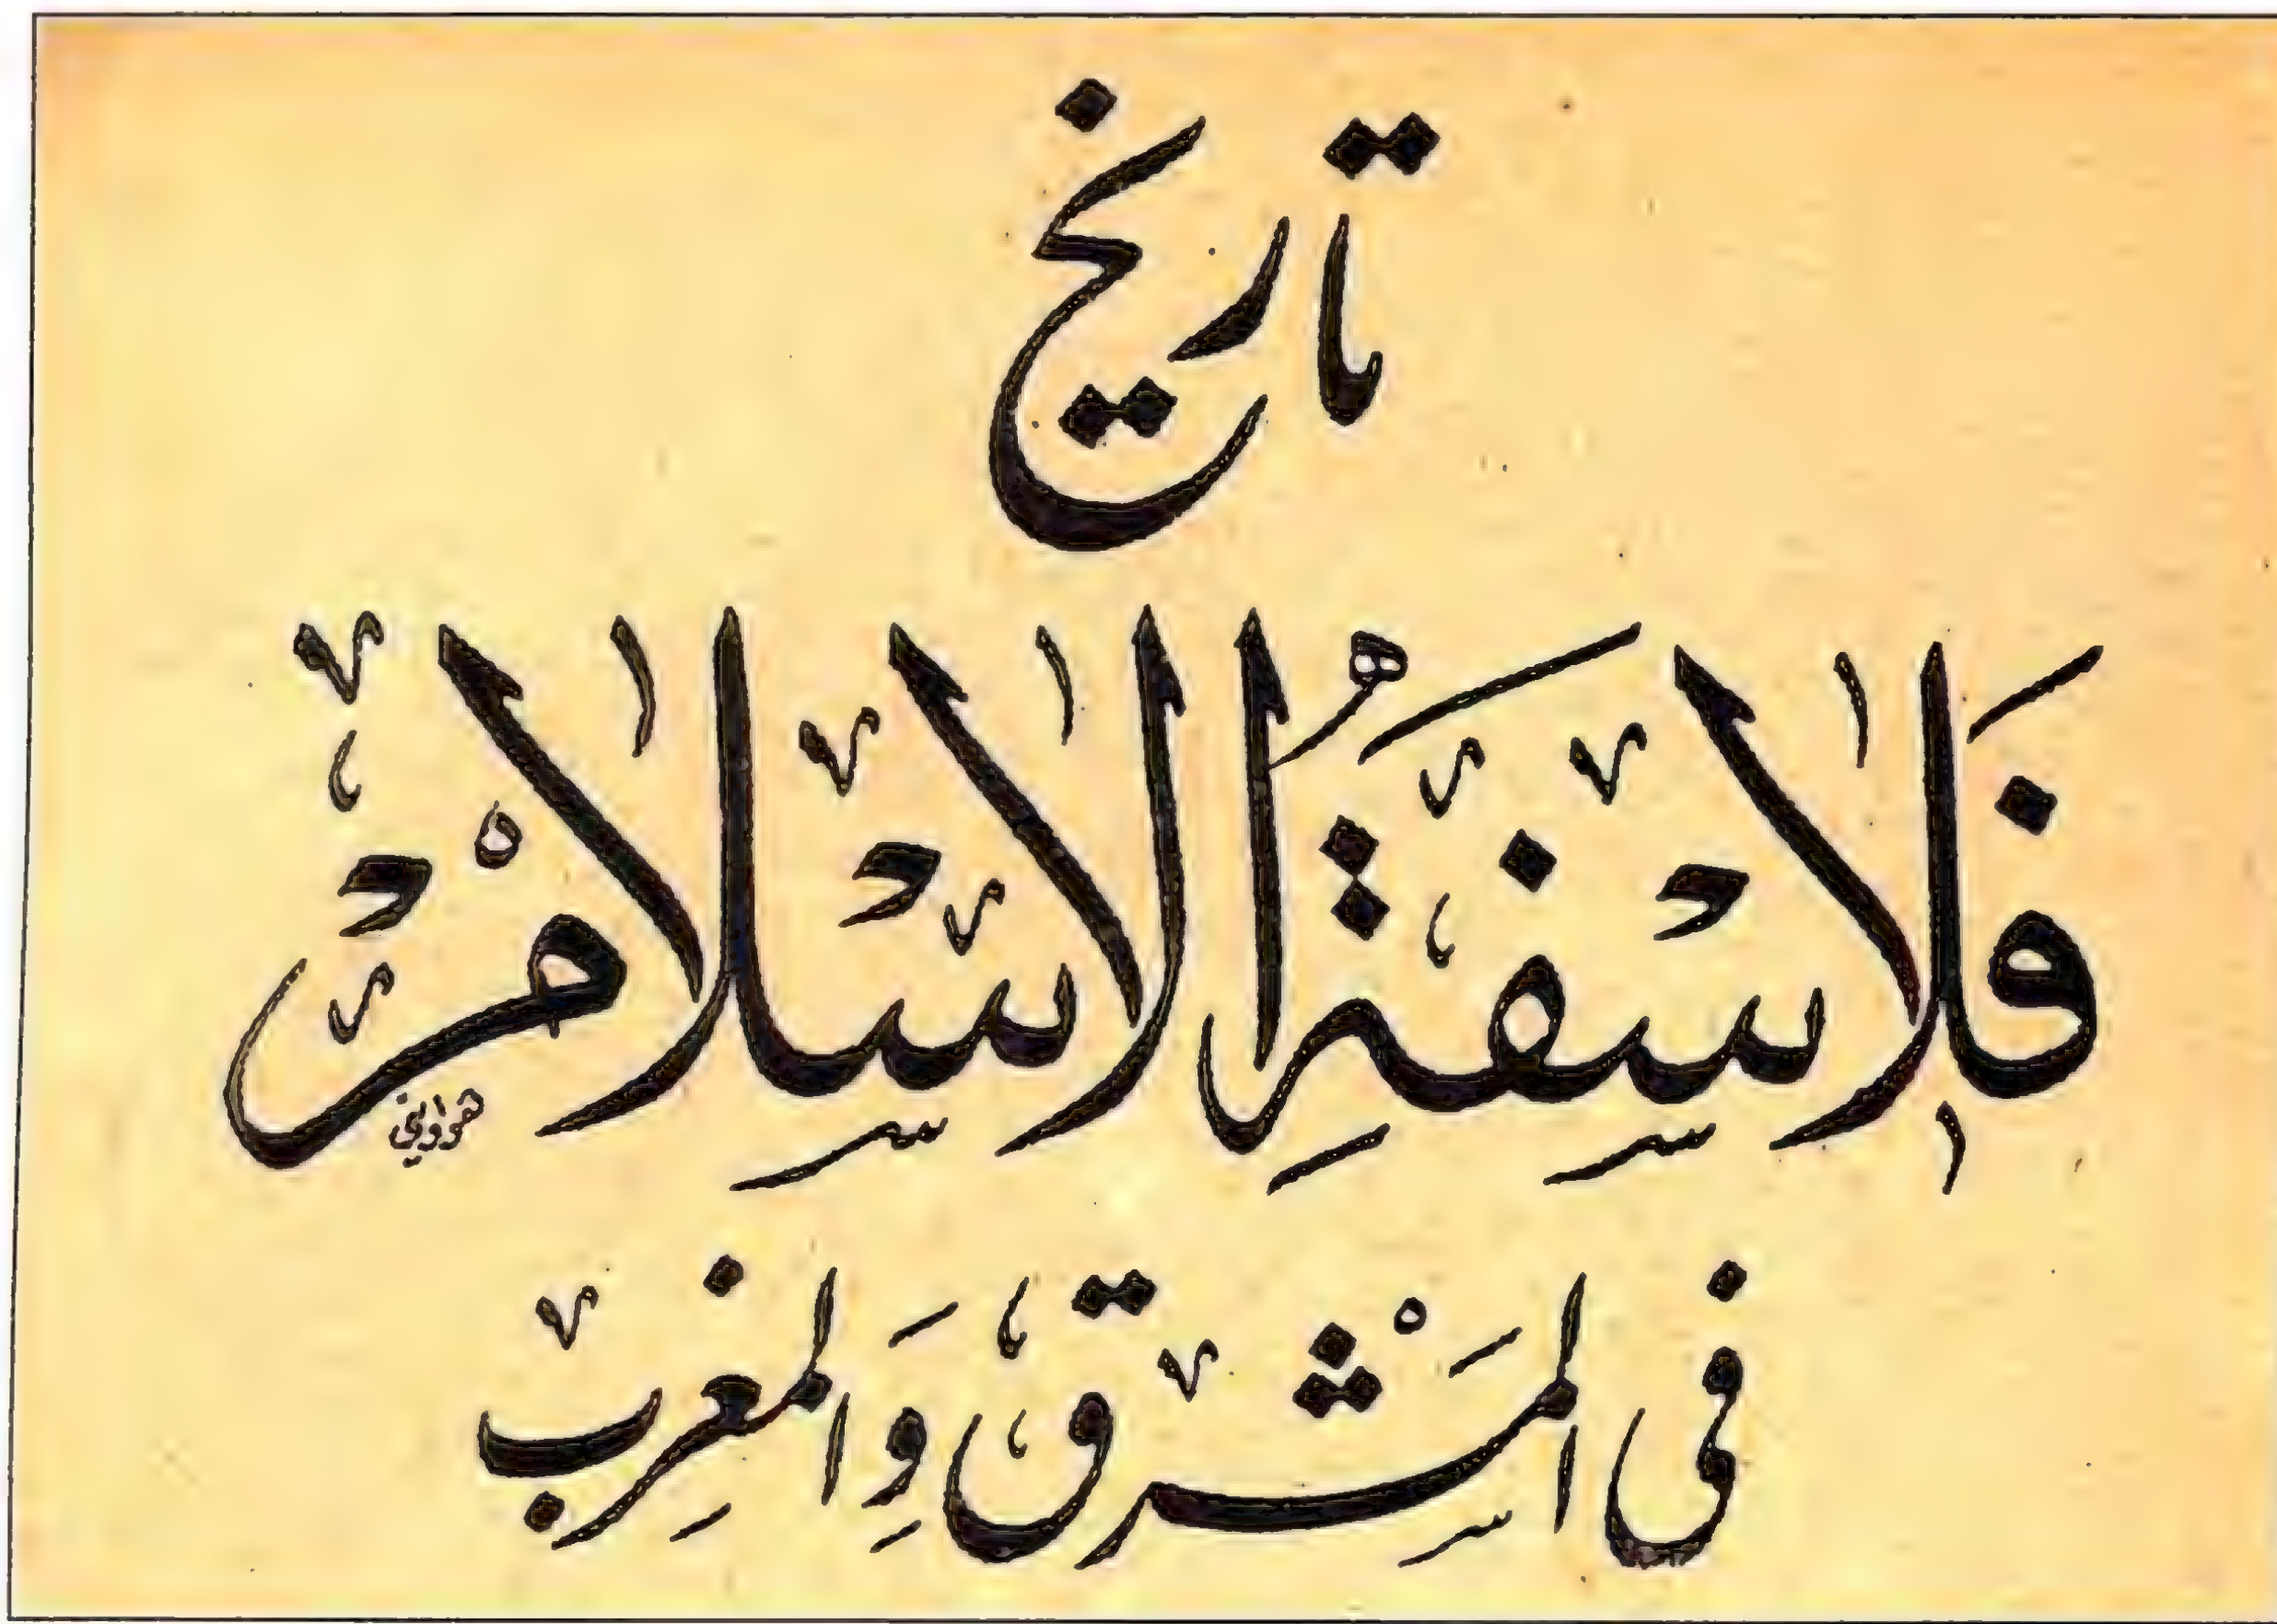 تاريخ
فَلَاسِفَةِ الاسِلام
هواويني
في المَشْرِق وَالمغرِب